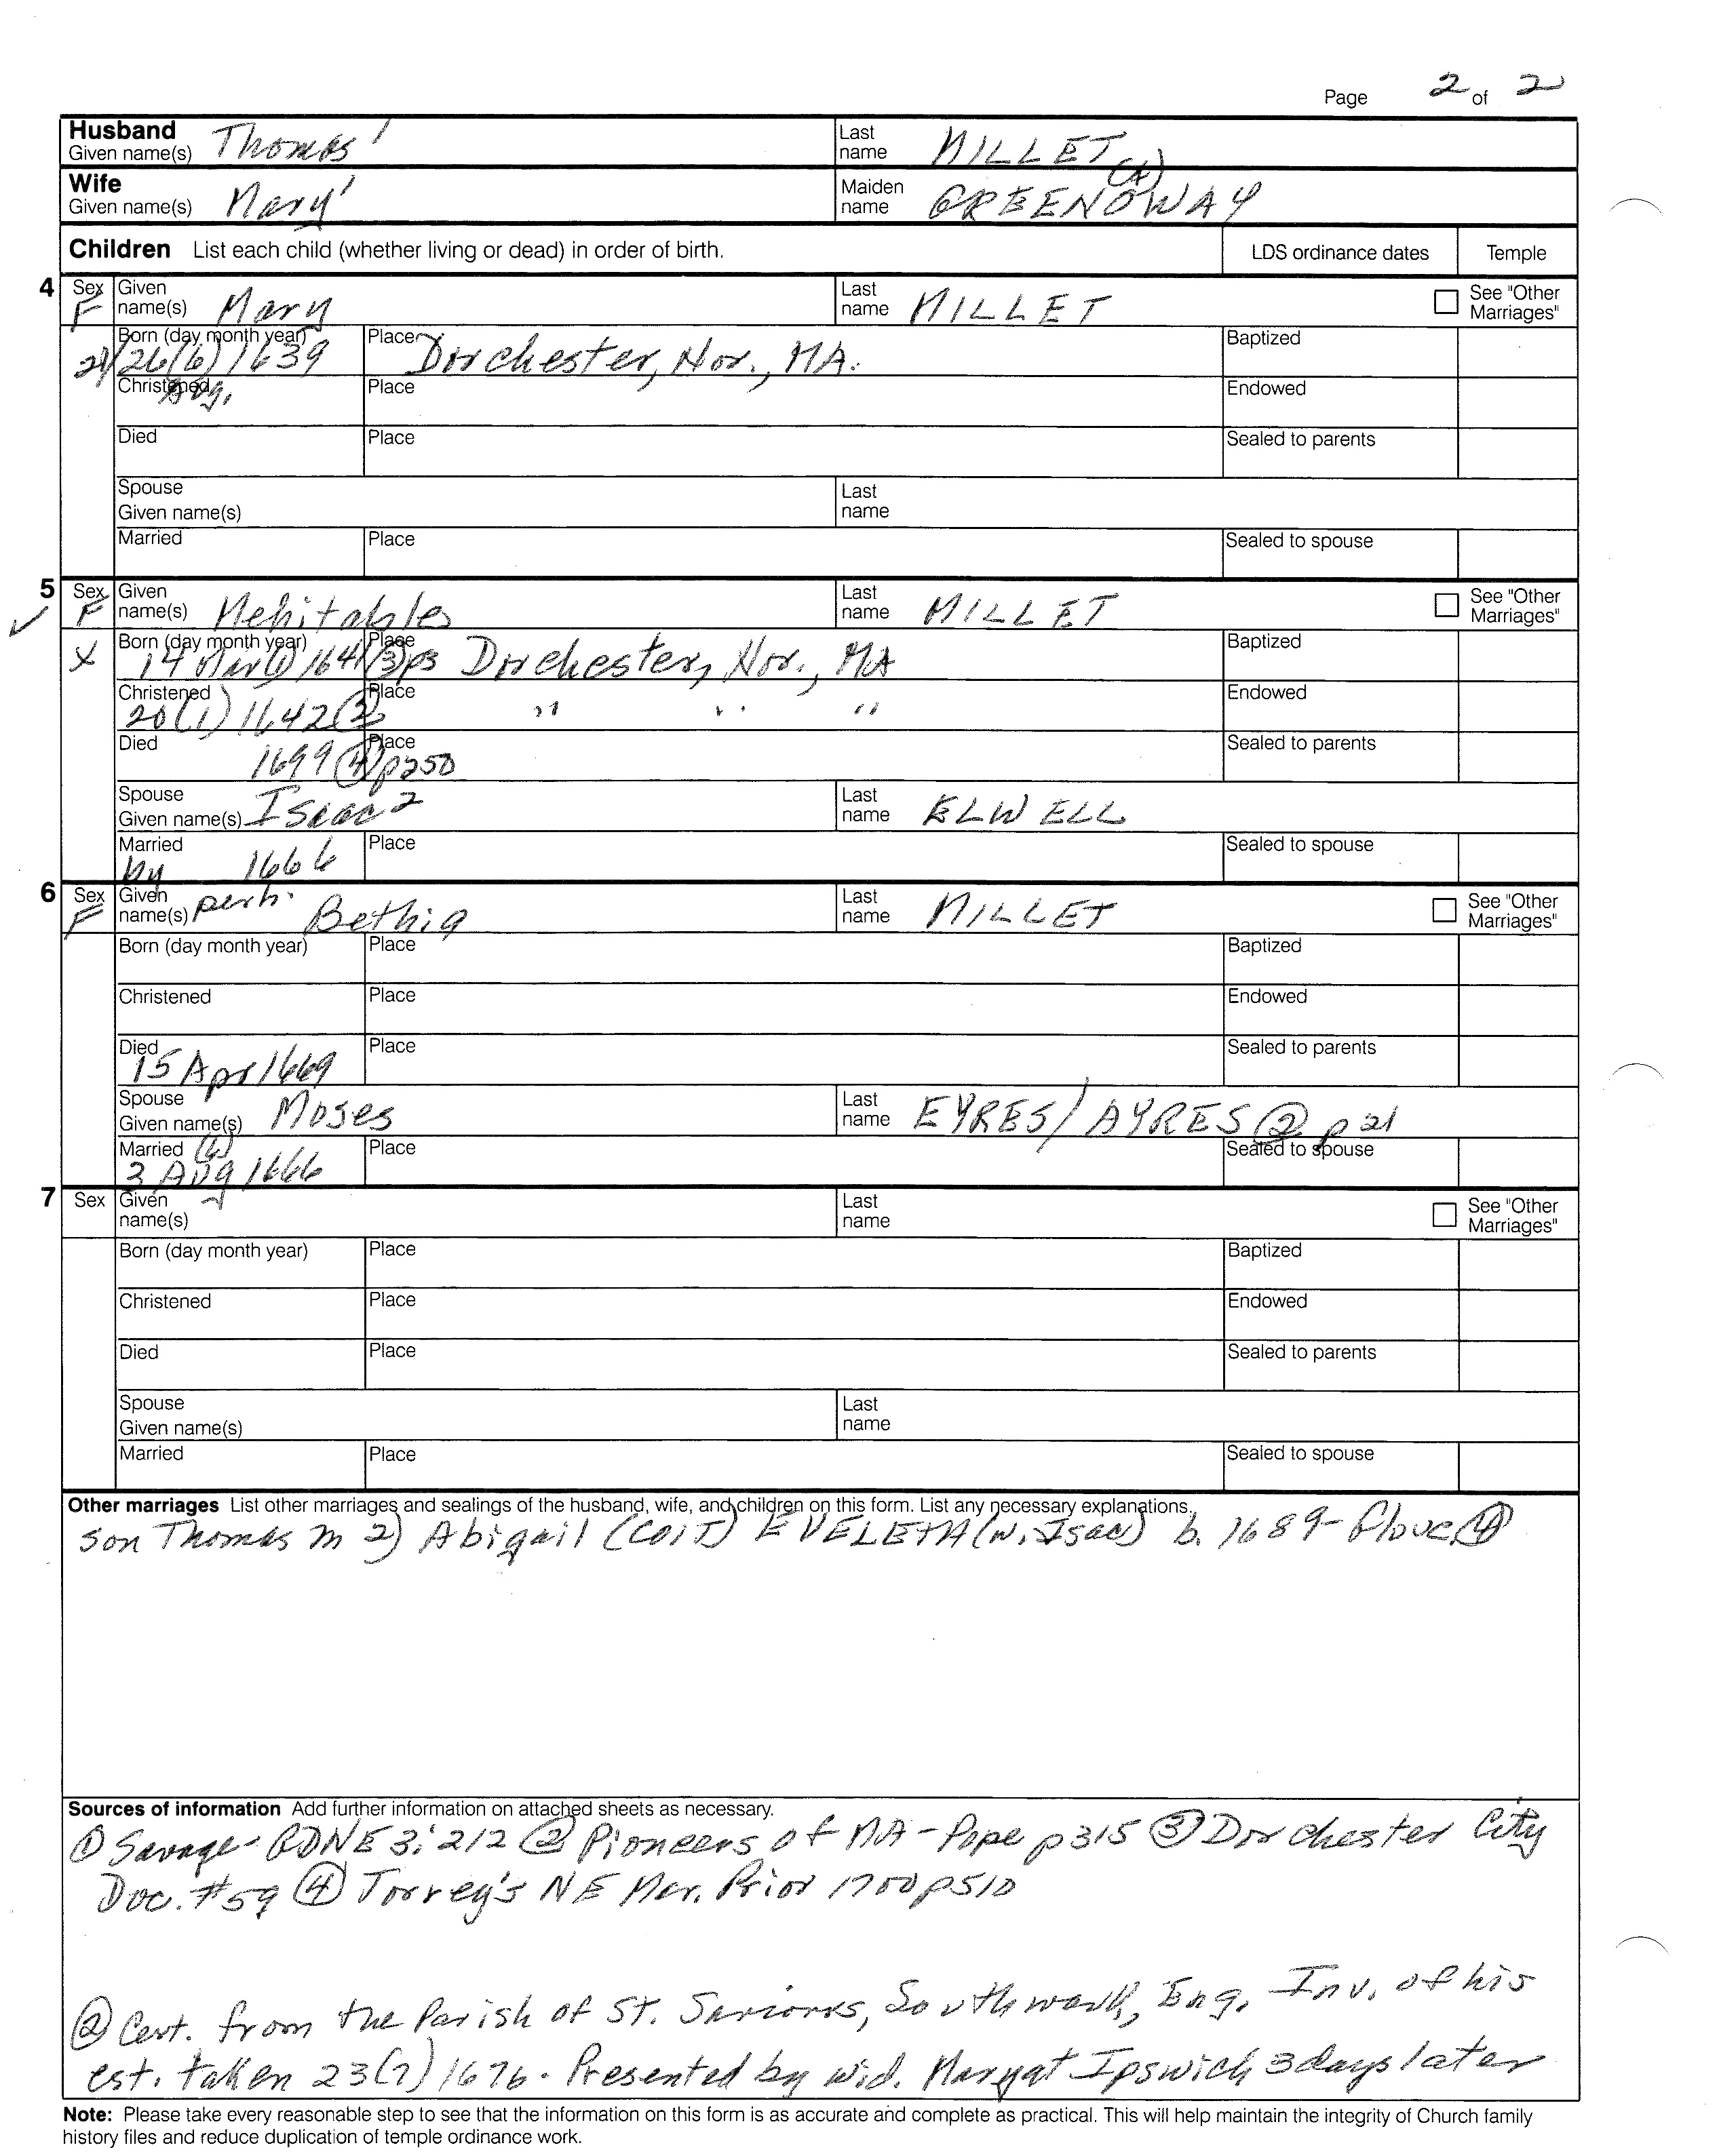 Page 2 of 2
Husband Given name(s) Thomas¹ Last name MILLET
Wife Given name(s) Mary¹ Maiden name GREENOWAY (A)
Children List each child (whether living or dead) in order of birth. LDS ordinance dates Temple
4 Sex F Given name(s) Mary Last name MILLET See "Other Marriages"
Born (day month year) 21/26(6)1639 Place Dorchester, Nor., MA. Baptized
Christened Aug. Place Endowed
Died Place Sealed to parents
Spouse Given name(s) Last name
Married Place Sealed to spouse
5 ✓ Sex F Given name(s) Mehitables Last name MILLET See "Other Marriages"
X Born (day month year) 14 Mar(1)1641/(3)p3 Place Dorchester, Nor., MA Baptized
Christened 20(1)1642② Place " " " Endowed
Died 1699④p250 Place Sealed to parents
Spouse Given name(s) Isaac² Last name ELWELL
Married by 1666 Place Sealed to spouse
6 Sex F Given name(s) perh. Bethia Last name MILLET See "Other Marriages"
Born (day month year) Place Baptized
Christened Place Endowed
Died 15 Apr 1669 Place Sealed to parents
Spouse Given name(s) Moses Last name EYRES/AYRES② p21
Married (6) 3 Aug 1666 Place Sealed to spouse
7 Sex Given name(s) Last name See "Other Marriages"
Born (day month year) Place Baptized
Christened Place Endowed
Died Place Sealed to parents
Spouse Given name(s) Last name
Married Place Sealed to spouse
Other marriages List other marriages and sealings of the husband, wife, and children on this form. List any necessary explanations.
son Thomas m 2) Abigail (COIT) EVELETH (w. Isaac) b. 1689- Glouc④
Sources of information Add further information on attached sheets as necessary.
① Savage- GDNE 3:212 ② Pioneers of MA - Pope p315 ③ Dorchester City
Doc. #59 ④ Torrey's NE Mar. Prior 1700 p510
② Cert. from the Parish of St. Southwark, Eng. Inv. of his
est. taken 23(7)1676. Presented by wid. Mary at Ipswich 3 days later
Note: Please take every reasonable step to see that the information on this form is as accurate and complete as practical. This will help maintain the integrity of Church family
history files and reduce duplication of temple ordinance work.